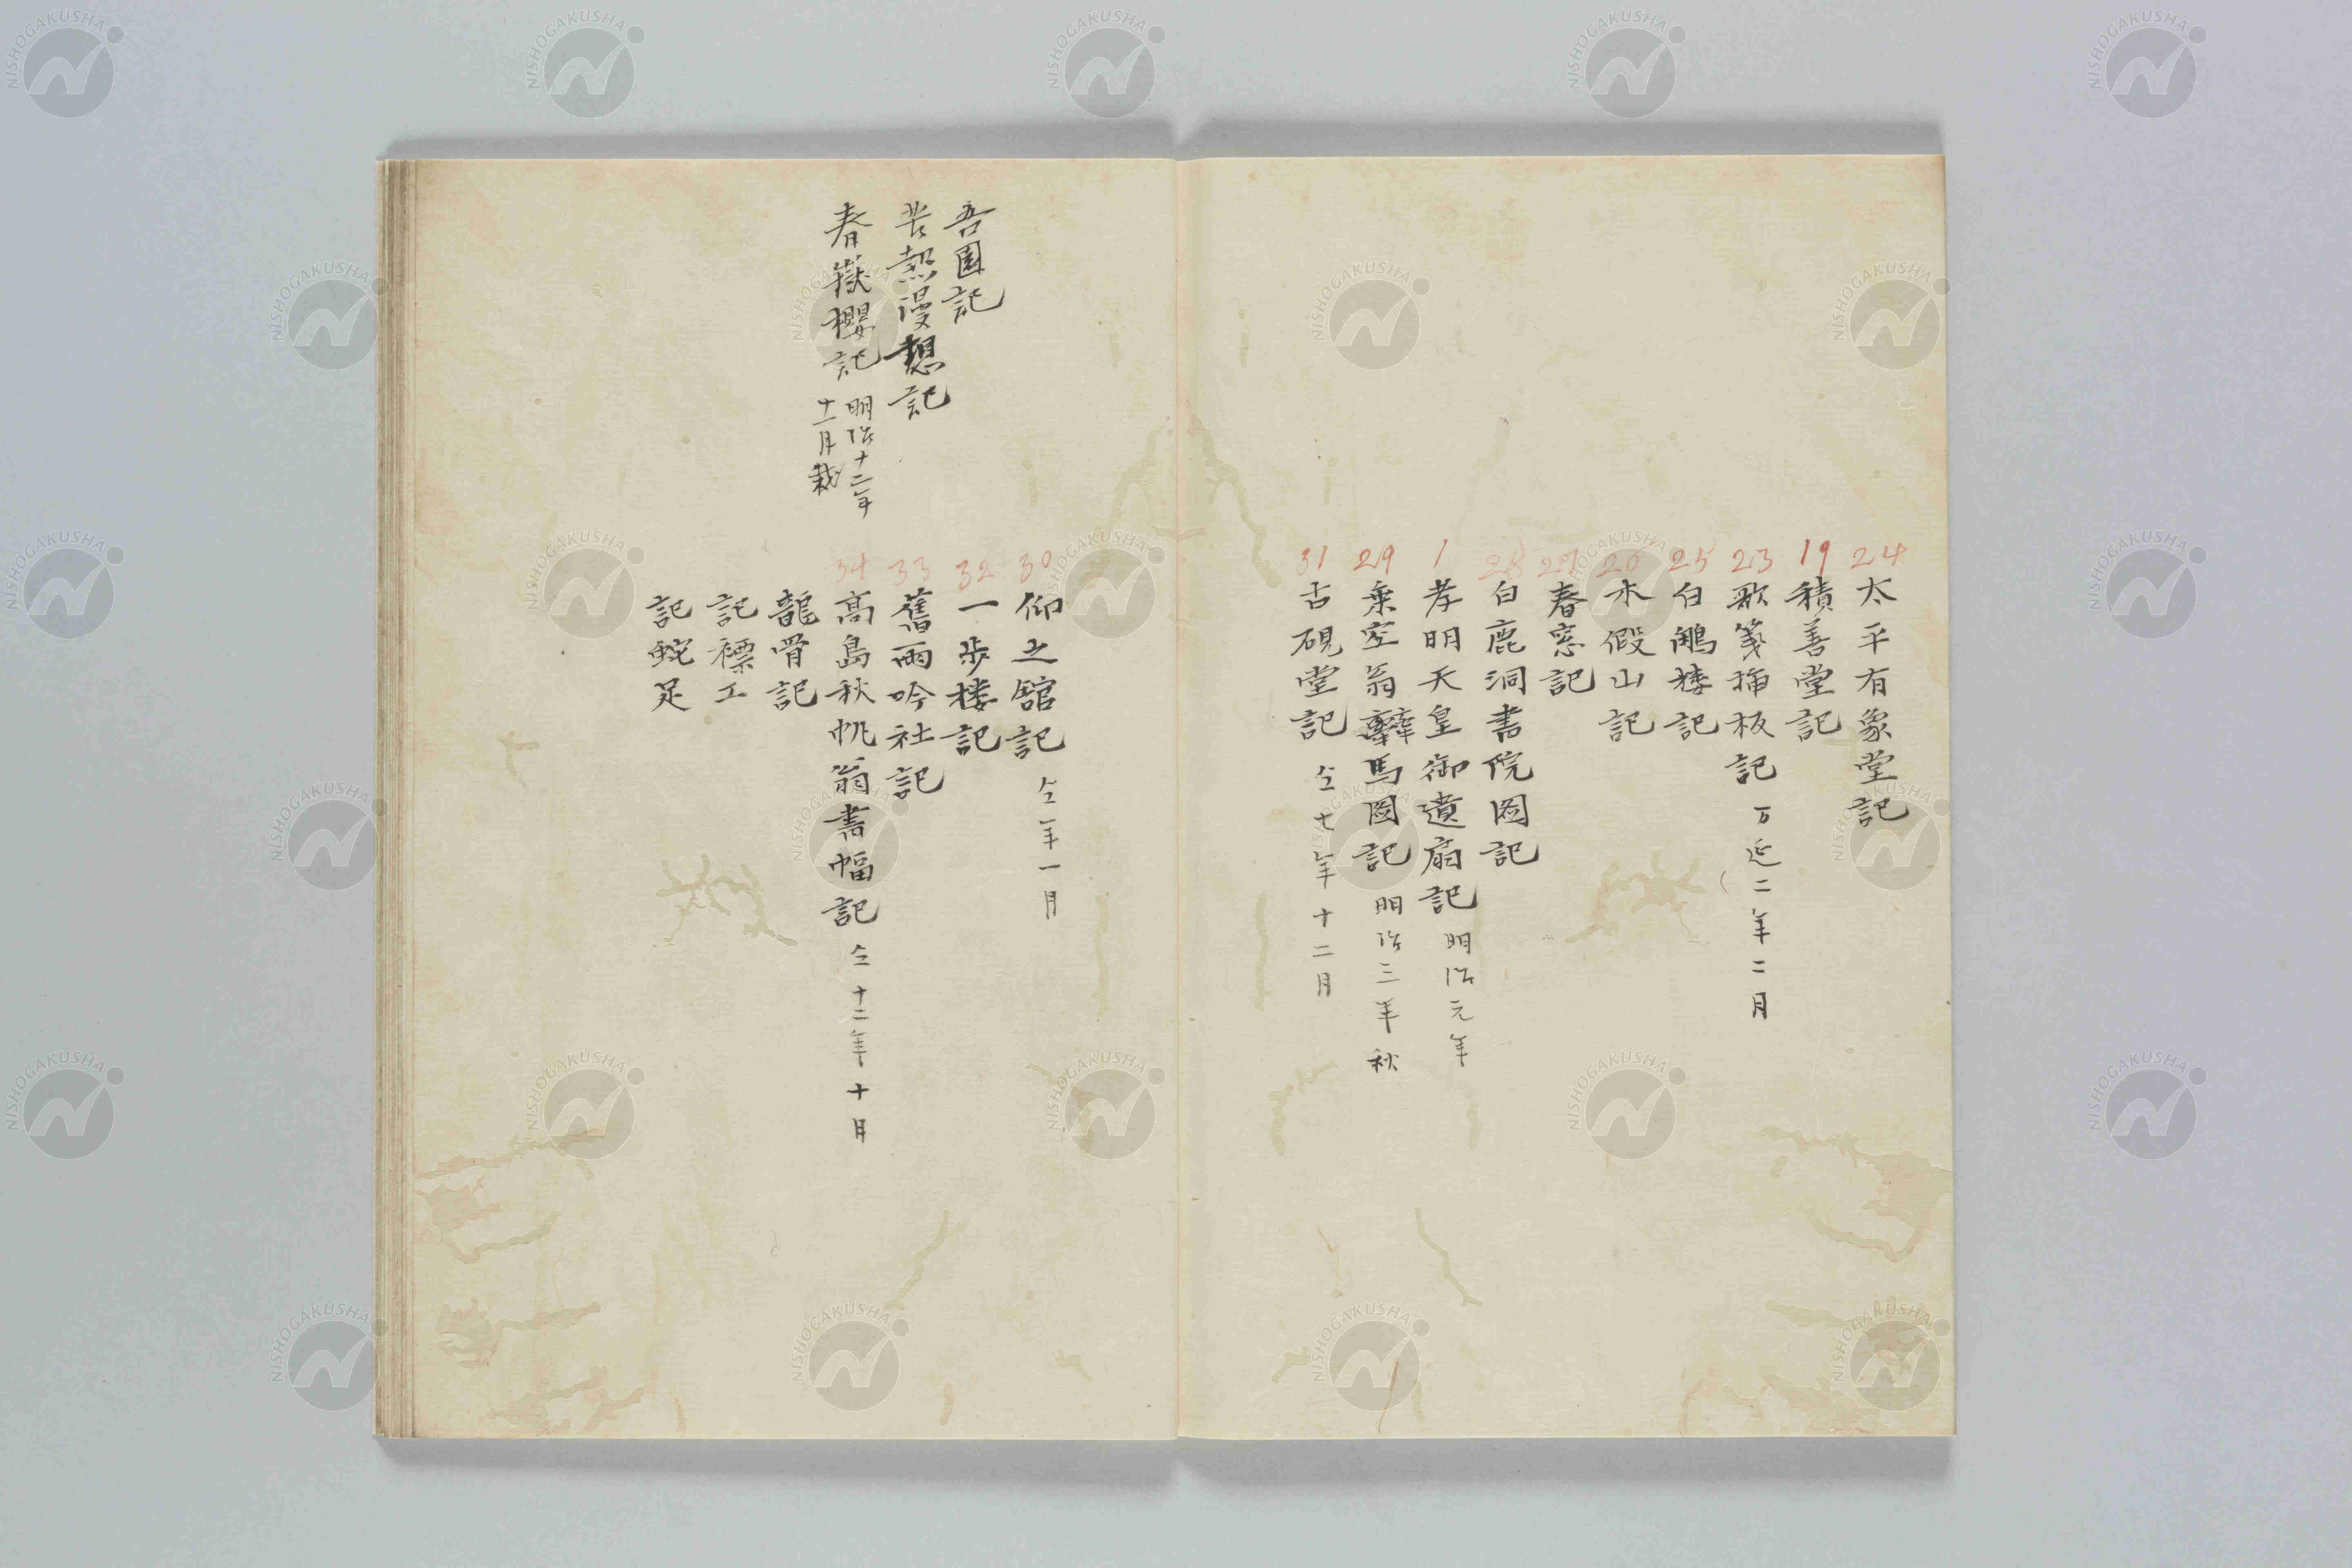 24 太平有象堂記
19 積善堂記
23 歌箋揷板記 万延二年二月
25 白鵰楼記
20 木假山記
27 春窓記
28 白鹿洞書院図記
1 孝明天皇御遺扇記 明治元年
29 乗空翁驊馬図記 明治三年秋
31 古硯堂記 仝七年十二月
30 仰之舘記 仝年一月
32 一歩楼記
33 舊雨吟社記
34 高島秋帆翁書幅記 仝十二年十月
龍骨記
記褾工
記蛇足
吾園記
苦熱漫想記
春嶽櫻記 明治十二年
十一月栽